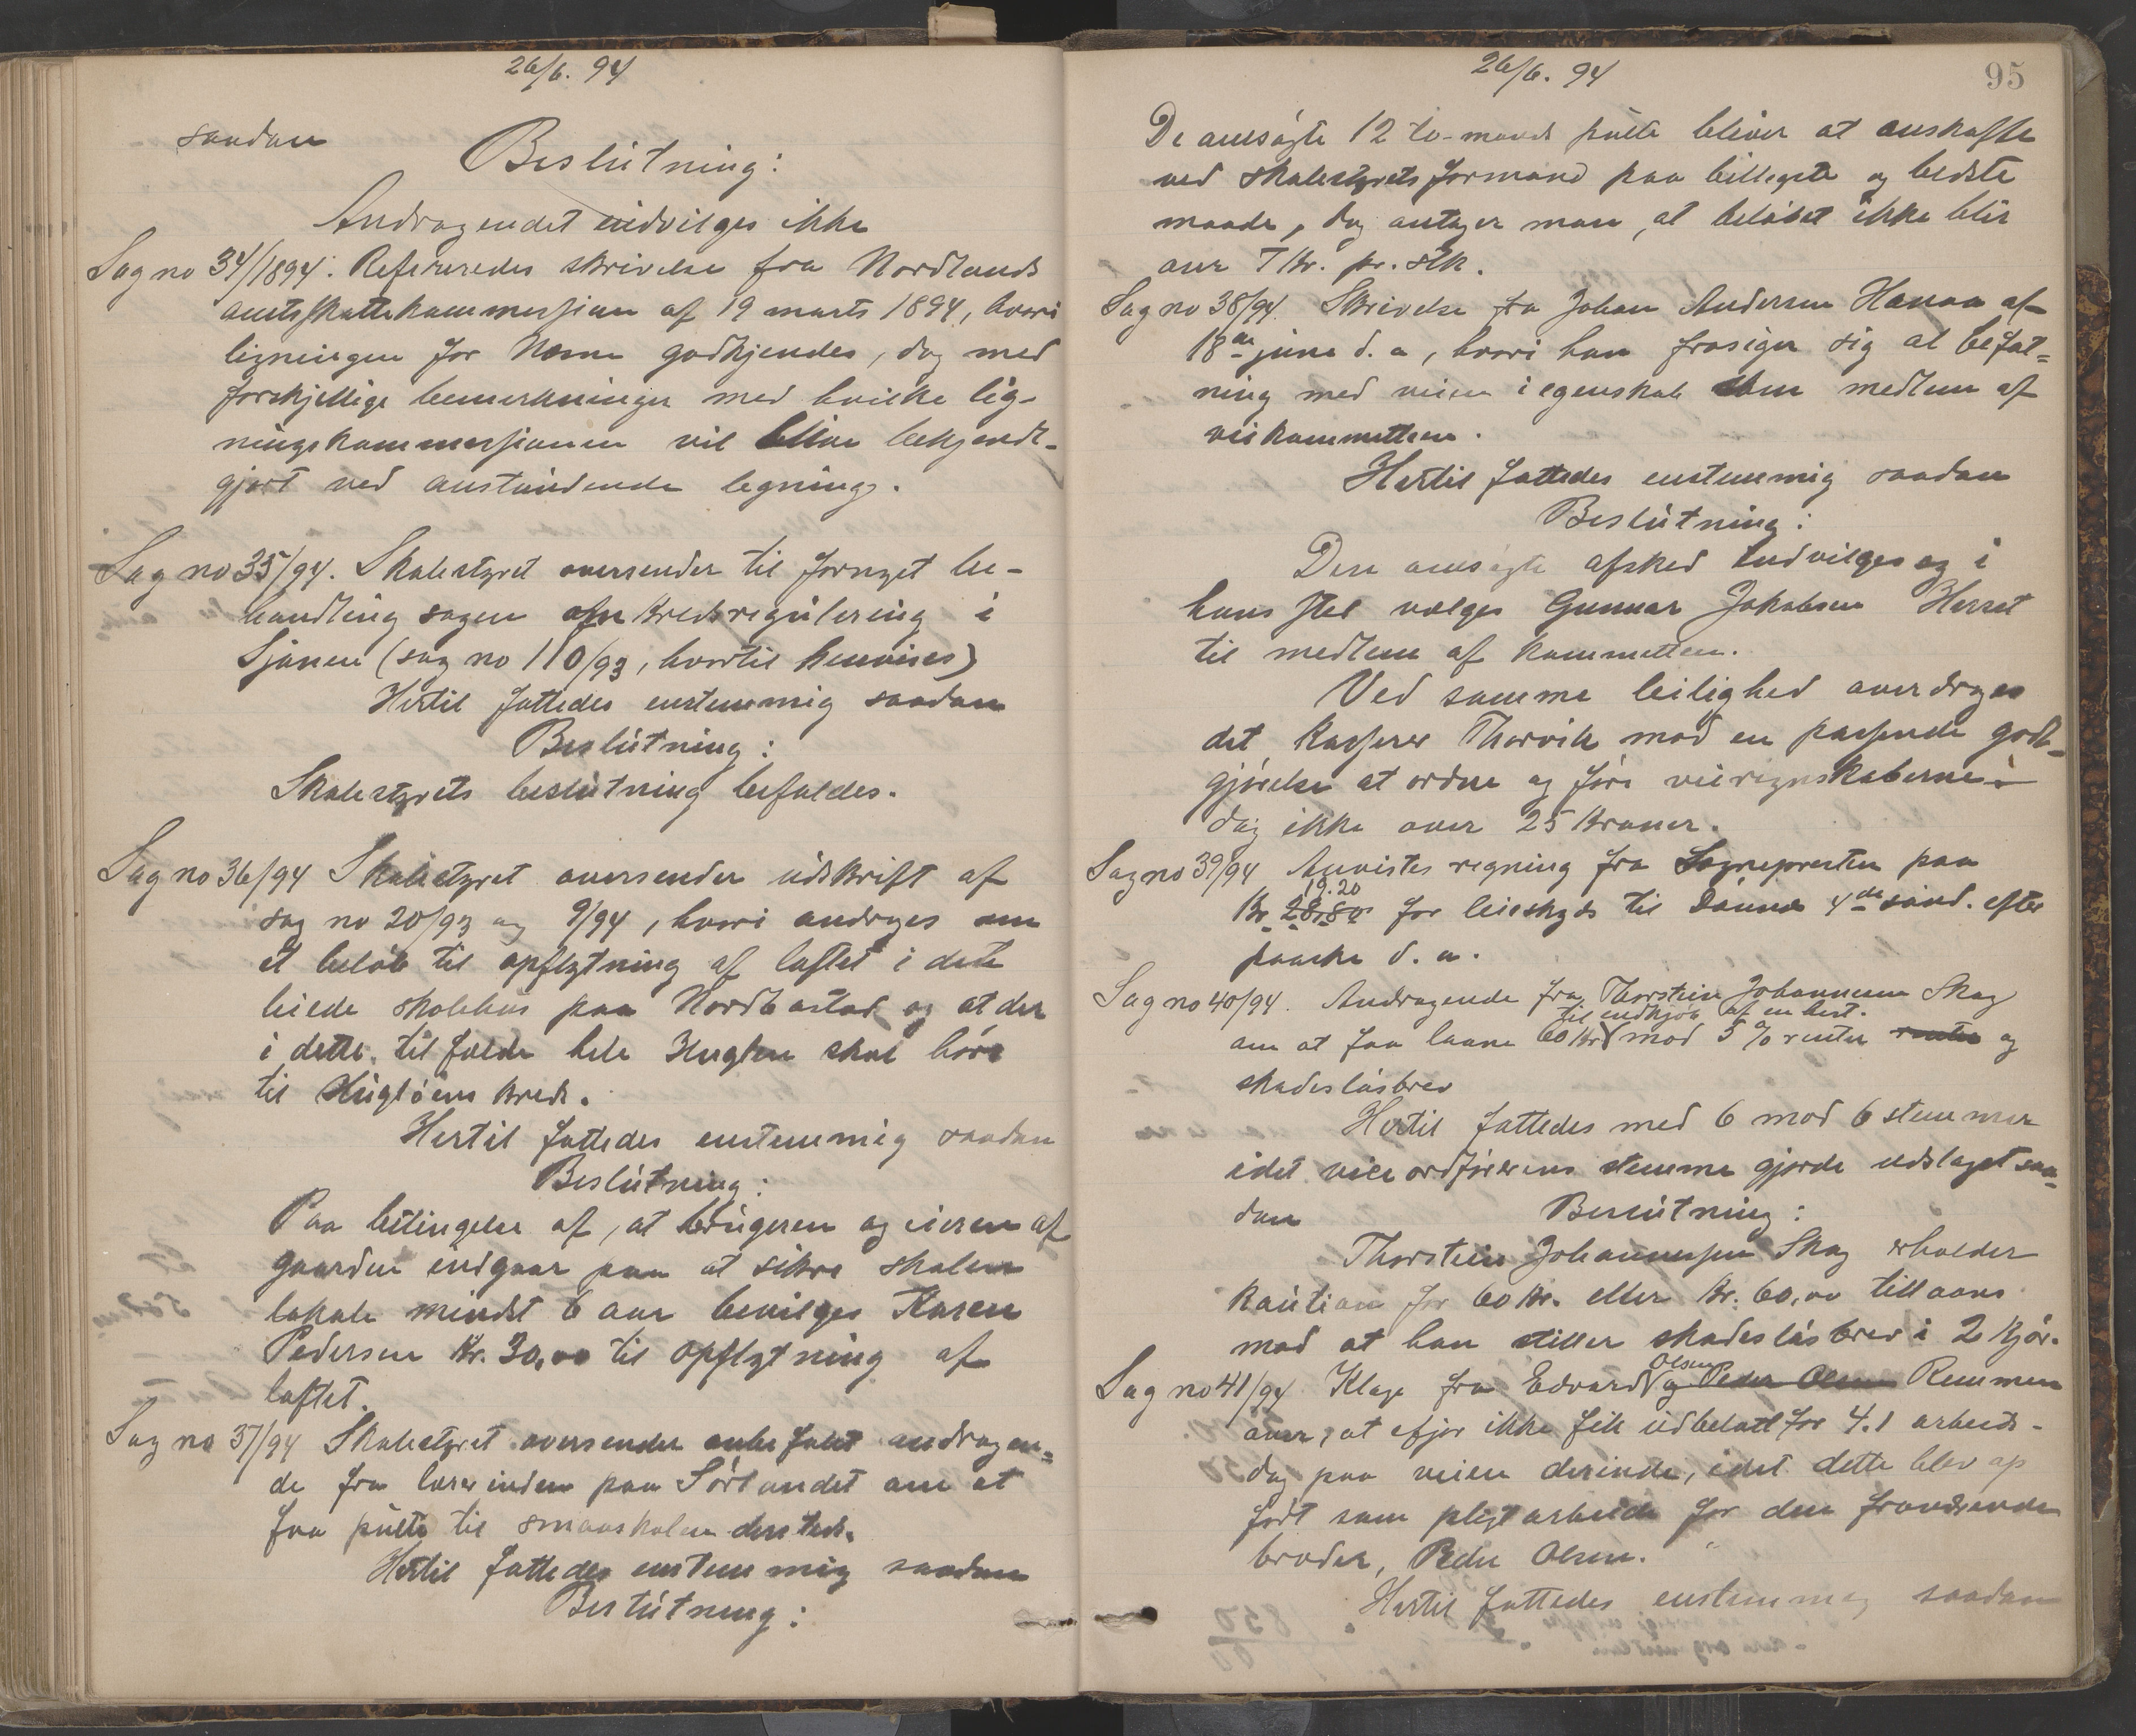 26/6. 94
saadan
Beslutning:
Andragendet indvilges ikke
Sag no 34/1894. Refereredes skrivelse fra Nordlands
amtsskattekommession af 19 marts 1894, hvori
ligningen for Nesne godkjendes, dog med
forskjellige bemerkninger med hvilke lig-
ningskommessionen vil blive bekjendt-
gjort ved anstundende legning.
Sag no 35/94. Skolestyret oversender til fornyet be-
handling sagen om kredsregulering i
Sjonen (sag no 110/93, hvortil henvises)
Hertil fattedes enstemmig saadan
Beslutning:
Skolestyrets beslutning befales.
Sag no 36/94 Skolestyret oversender udskrift af
sag no 20/93 og 9/94, hvori andrages om
et beløb til opflytning af loftet i dete
leiede skolehus paa Nordbostad og at der
i dette tilfælde hele Hugløen skal høre
til Hugløens kreds.
Hertil fattedes enstemmig saadan
Beslutning:
Paa betingelse af, at brugeren og eieren af
gaarden indgaar paa at sikre skolen
lokale mindst 6 aar bevilges Karen
Pedersen kr. 30,00 til opflytning af
loftet.
Sag no 37/94 Skolestyret oversender anbefalet andragen-
de fra lærerinden paa Sørlandet om at
faa pulte til smaaskolen dersteds.
Hertil fattedes enstemmig saadan
Beslutning:
26/6. 94
95
De ansøgte 12 to-mands pulte bliver at anskaffe
ved skolestyrets formand paa billigste og bedste
maade, dog antager man, at beløbet ikke blir
over 7 kr. pr. stk.
Sag no 38/94. Skrivelse fra Johan Andersen Hanaa af
18de juni d. a, hvori han frasiger sig al befat-
ning med veien i egenskab som medlem af
veikommitteen.
Hertil fattedes enstemmig saadan
Beslutning:
Den ansøgte afsked indvilges og i
hans sted vælges Gunnar Jakobsen
til medlem af kommitteen.
Ved samme leilighed overdrages
det kasserer Thorvik mod en passende godt-
gjørelse at ordne og føre veiregnskaberne
dog ikke over 25 kroner.
Sag no 39/94 Anvistes regning fra Sogneprestem paa
19.20
kr 28,80 for leieskyds til Dønnes 4de sønd. efter
paaske d. a.
Sag no 40/94. Andragende fra Thorstein Johannesen Skog
til indkjøb af en hest.
om at faa laane 60 kr mod 5 % renter renter og
skadesløsbrev
Hertil fattedes med 6 mod 6 stemmer
idet viceordførerens stemme gjorde udslaget saa-
dan
Beslutning:
Thorstein Johannessen Skog erholder
kaution for 60 kr. eller kr. 60,00 tillaans
mod at han stiller skadesløsbrev i 2 kjør.
Olsen
Sag no 41/94 Klage fra Edvard og Peder Olsen Remmen
over, at ifjor ikke fik udbetalt for 4.1 arbeids-
dag paa veien derinde, idet dette blev op
ført som pligtarbeide for den fraværende
broder, Peder Olsen.
Hertil fattedes enstemmig saadan